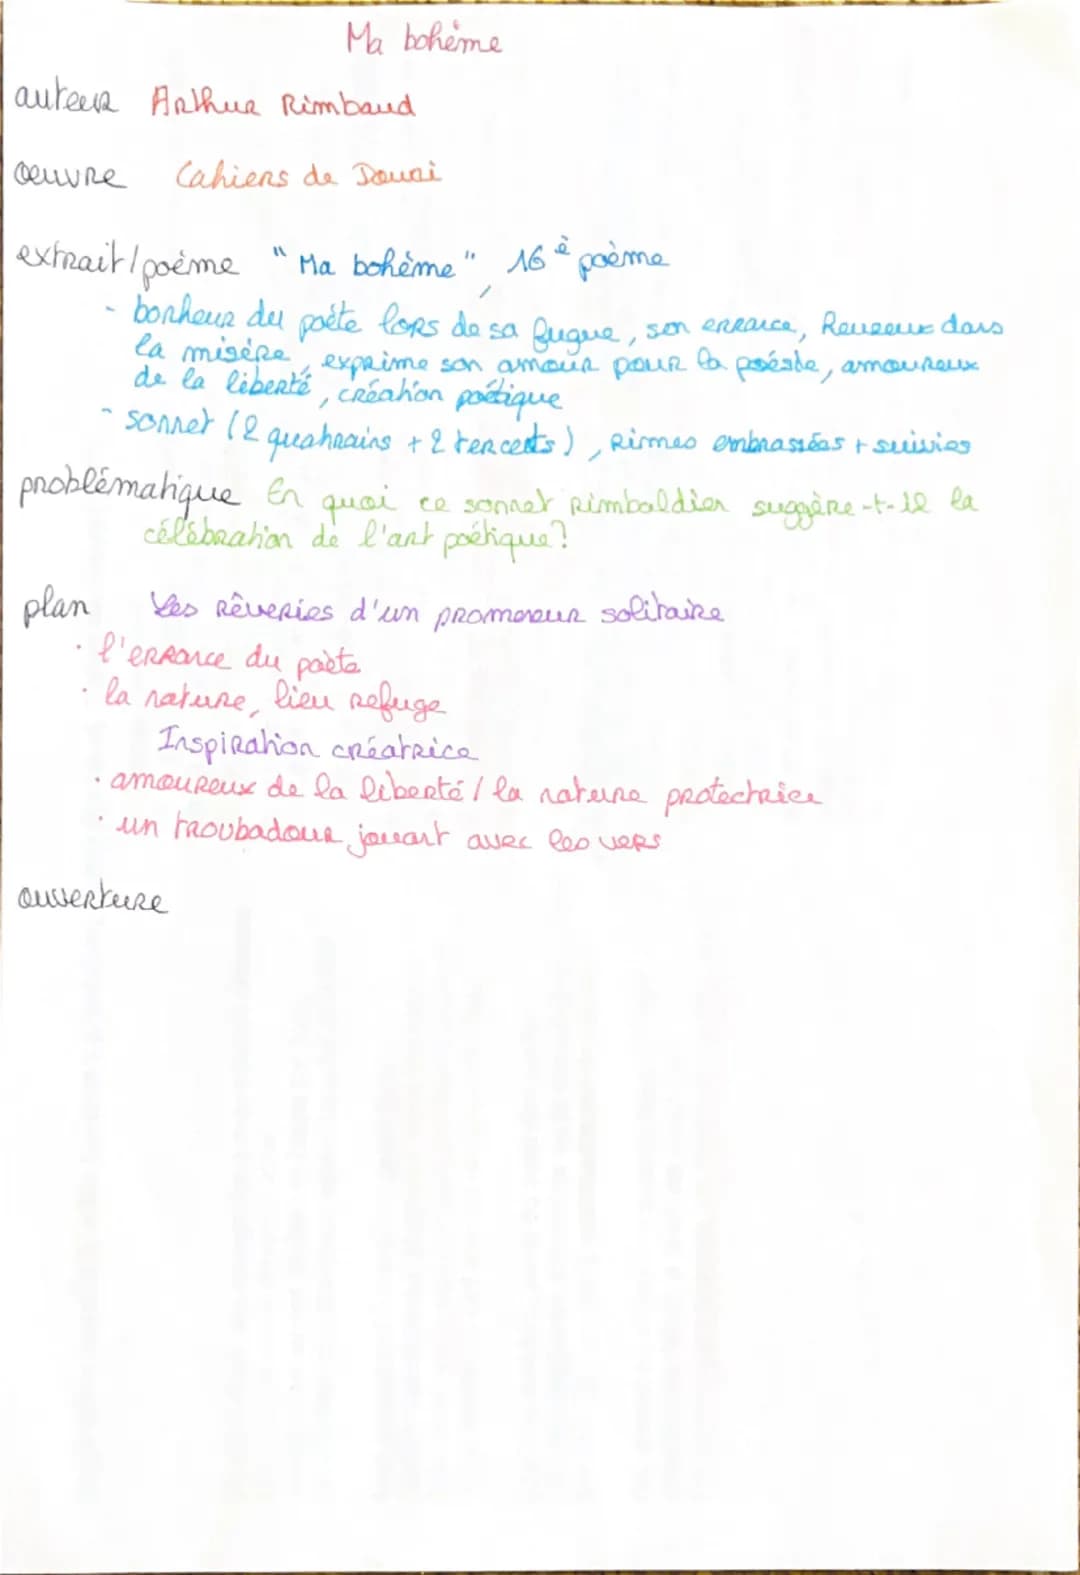 Ma bohème
auteur Arthur Rimbaud
oeuvre Cahiers de Douai
extrait/poème "Ma bohème", 16è poème
- bonheur du poète lors de sa fugue, son errance, heureux dans
la misère, exprime son amour pour la poésie, amoureux
de la liberté, création poétique
- sonnet (2 quatrains + 2 tercets), rimes embrassées + suivies
problématique En quoi ce sonnet rimbaldien suggère-t-il la
célébration de l'art poétique?
plan Les rêveries d'un promeneur solitaire
· l'errance du poète
· la nature, lieu refuge
Inspiration créatrice
· amoureux de la liberté / la nature protectrice
· un troubadour jouant avec les vers
ouverture